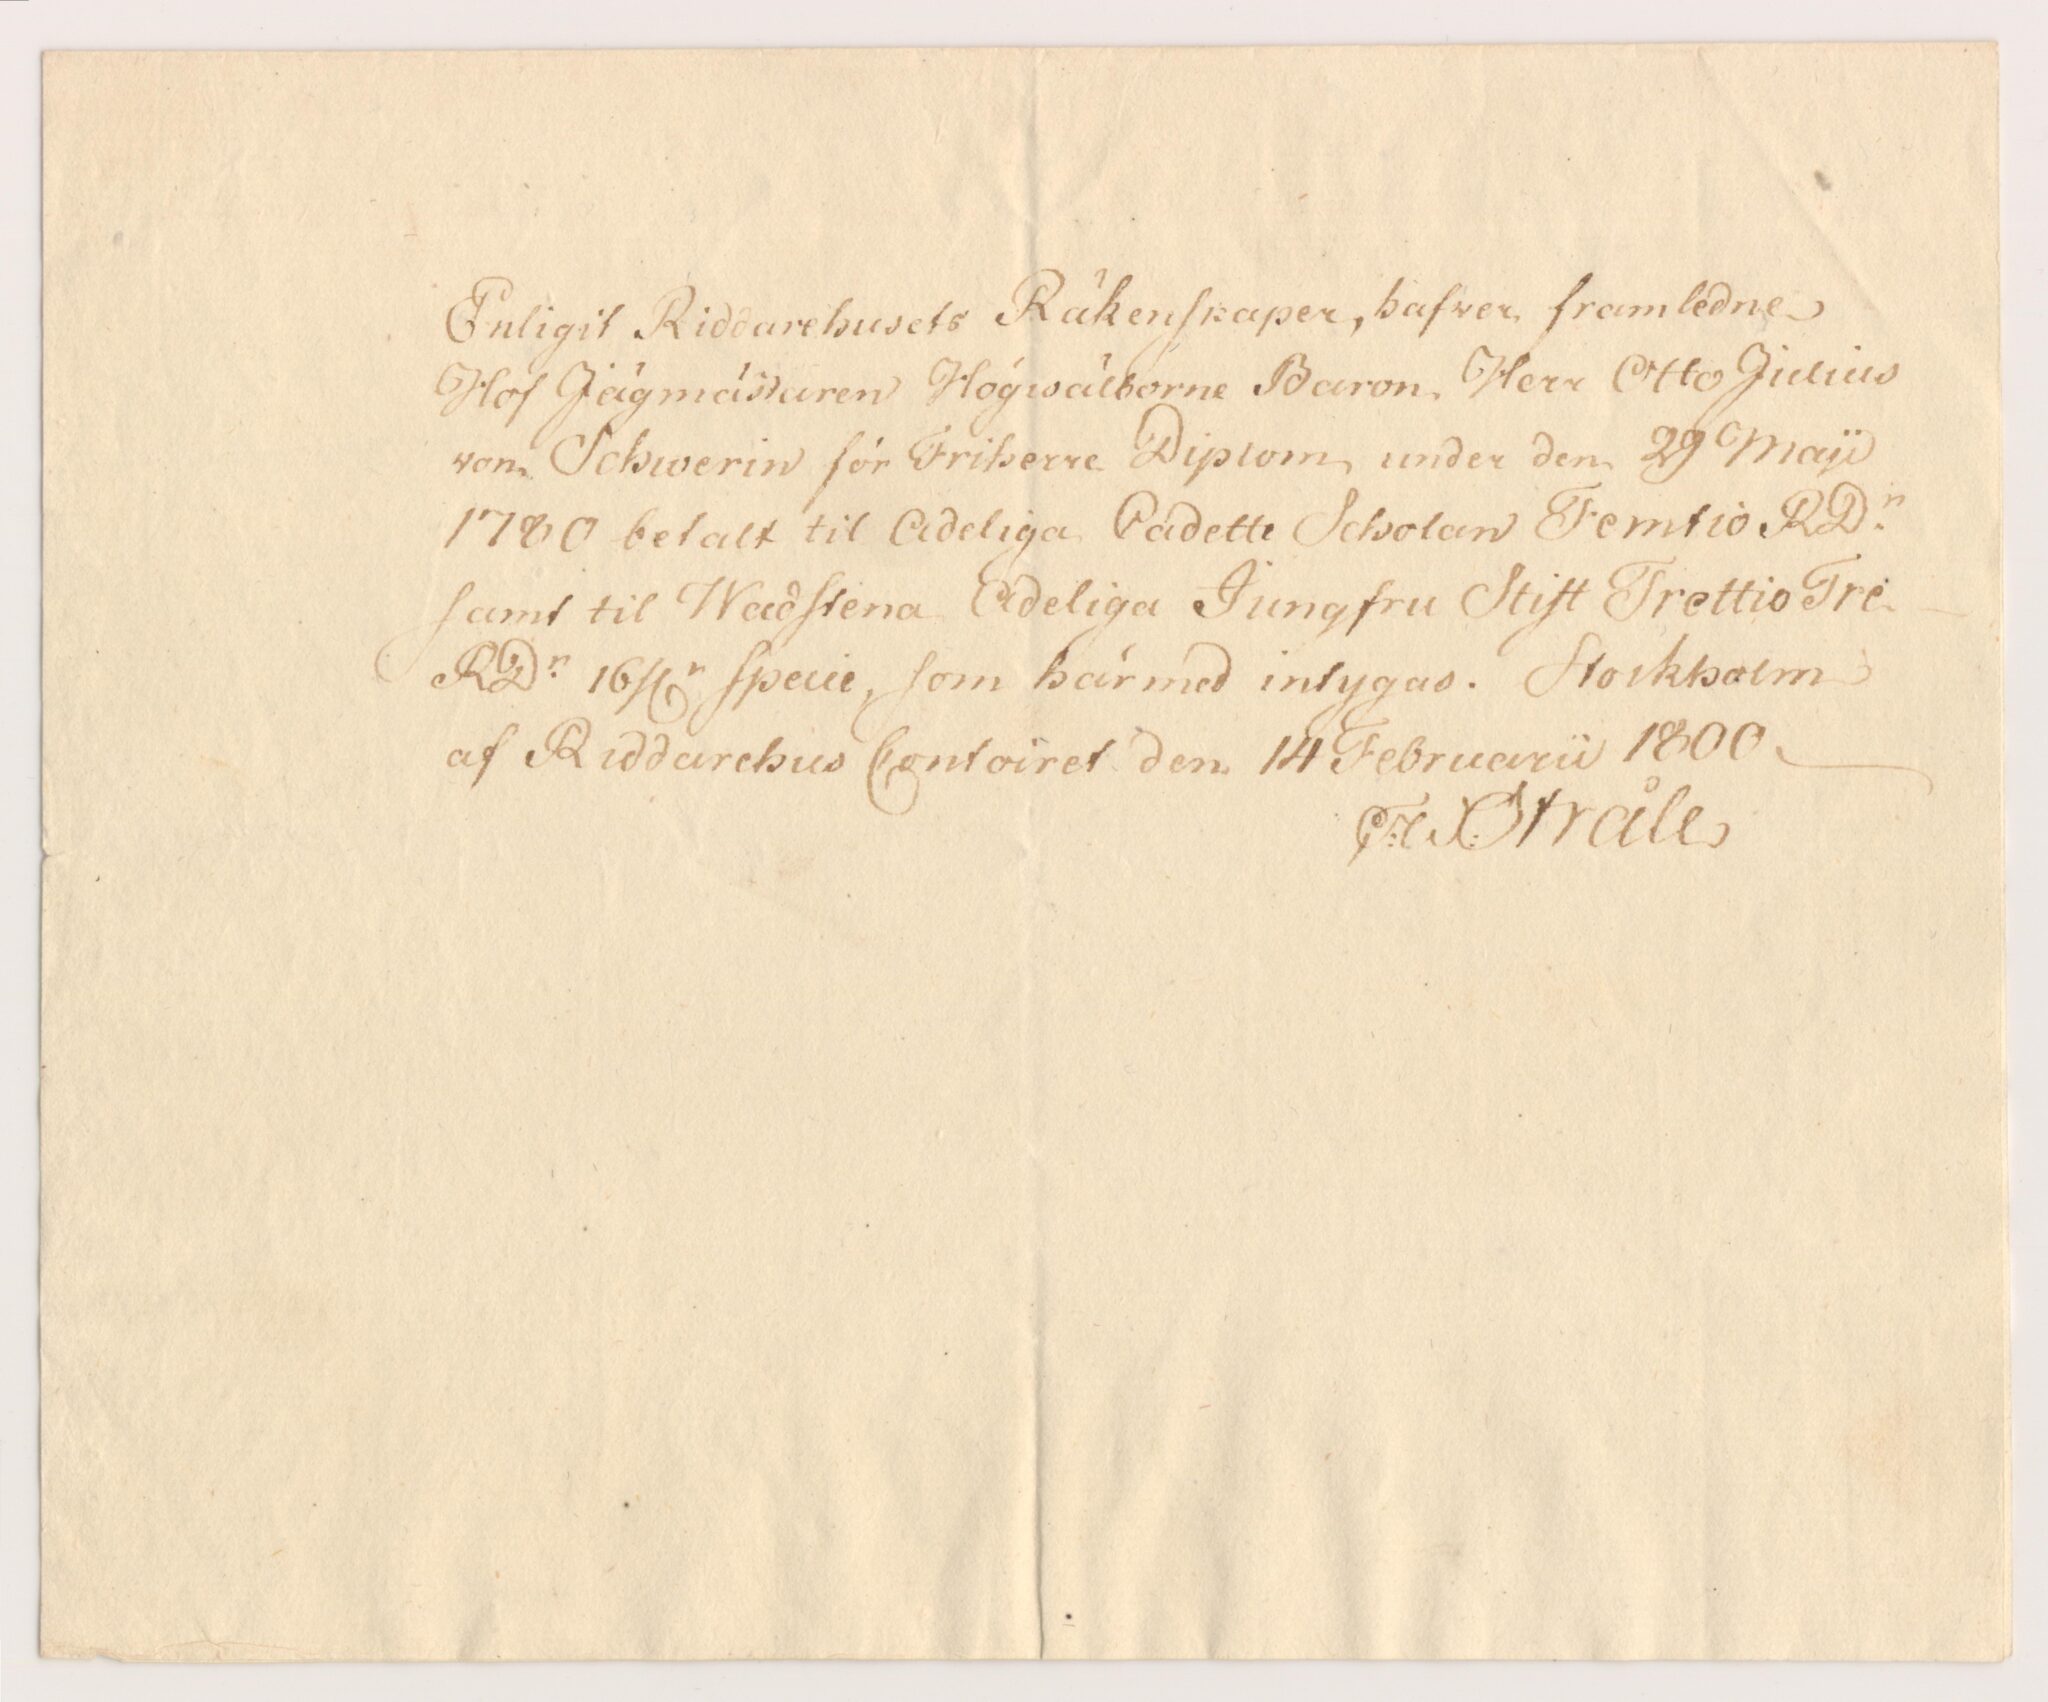 Enligit Riddarehusets Räkenskaper, hafver framledne
Hof Jägmästaren Högwälborne Baron Herr Otto Julius
von Schwerin för Friherre Diplom under den 29 Maji
1780 betalt til Adeliga Cadette Scholan Femtio RDr
samt til Wadstena Adeliga Jungfru Stift Trettio Tre
RDr 16 sk:r specie, som härmed intygas. Stockholm
af Riddarehus Contoiret den 14 Februarii 1800
Stråle